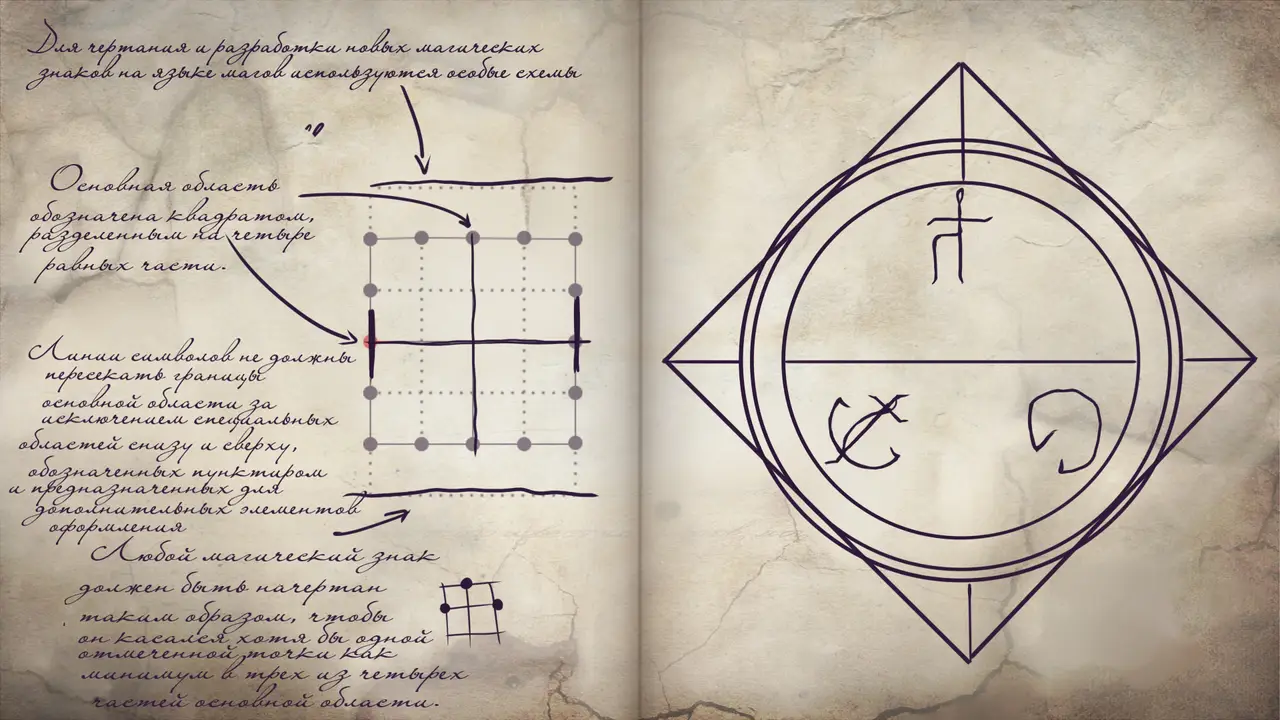 Для чертания и разработки новых магических
знаков на языке магов используются особые схемы
Основная область
обозначена квадратом,
разделенным на четыре
равных части.
Линии символов не должны
пересекать границы
основной области за
исключением специальных
областей снизу и сверху,
обозначенных пунктиром
и предназначенных для
дополнительных элементов
оформления
Любой магический знак
должен быть начертан
таким образом, чтобы
он касался хотя бы одной
отмеченной точки как
минимум в трех из четырех
частей основной области.